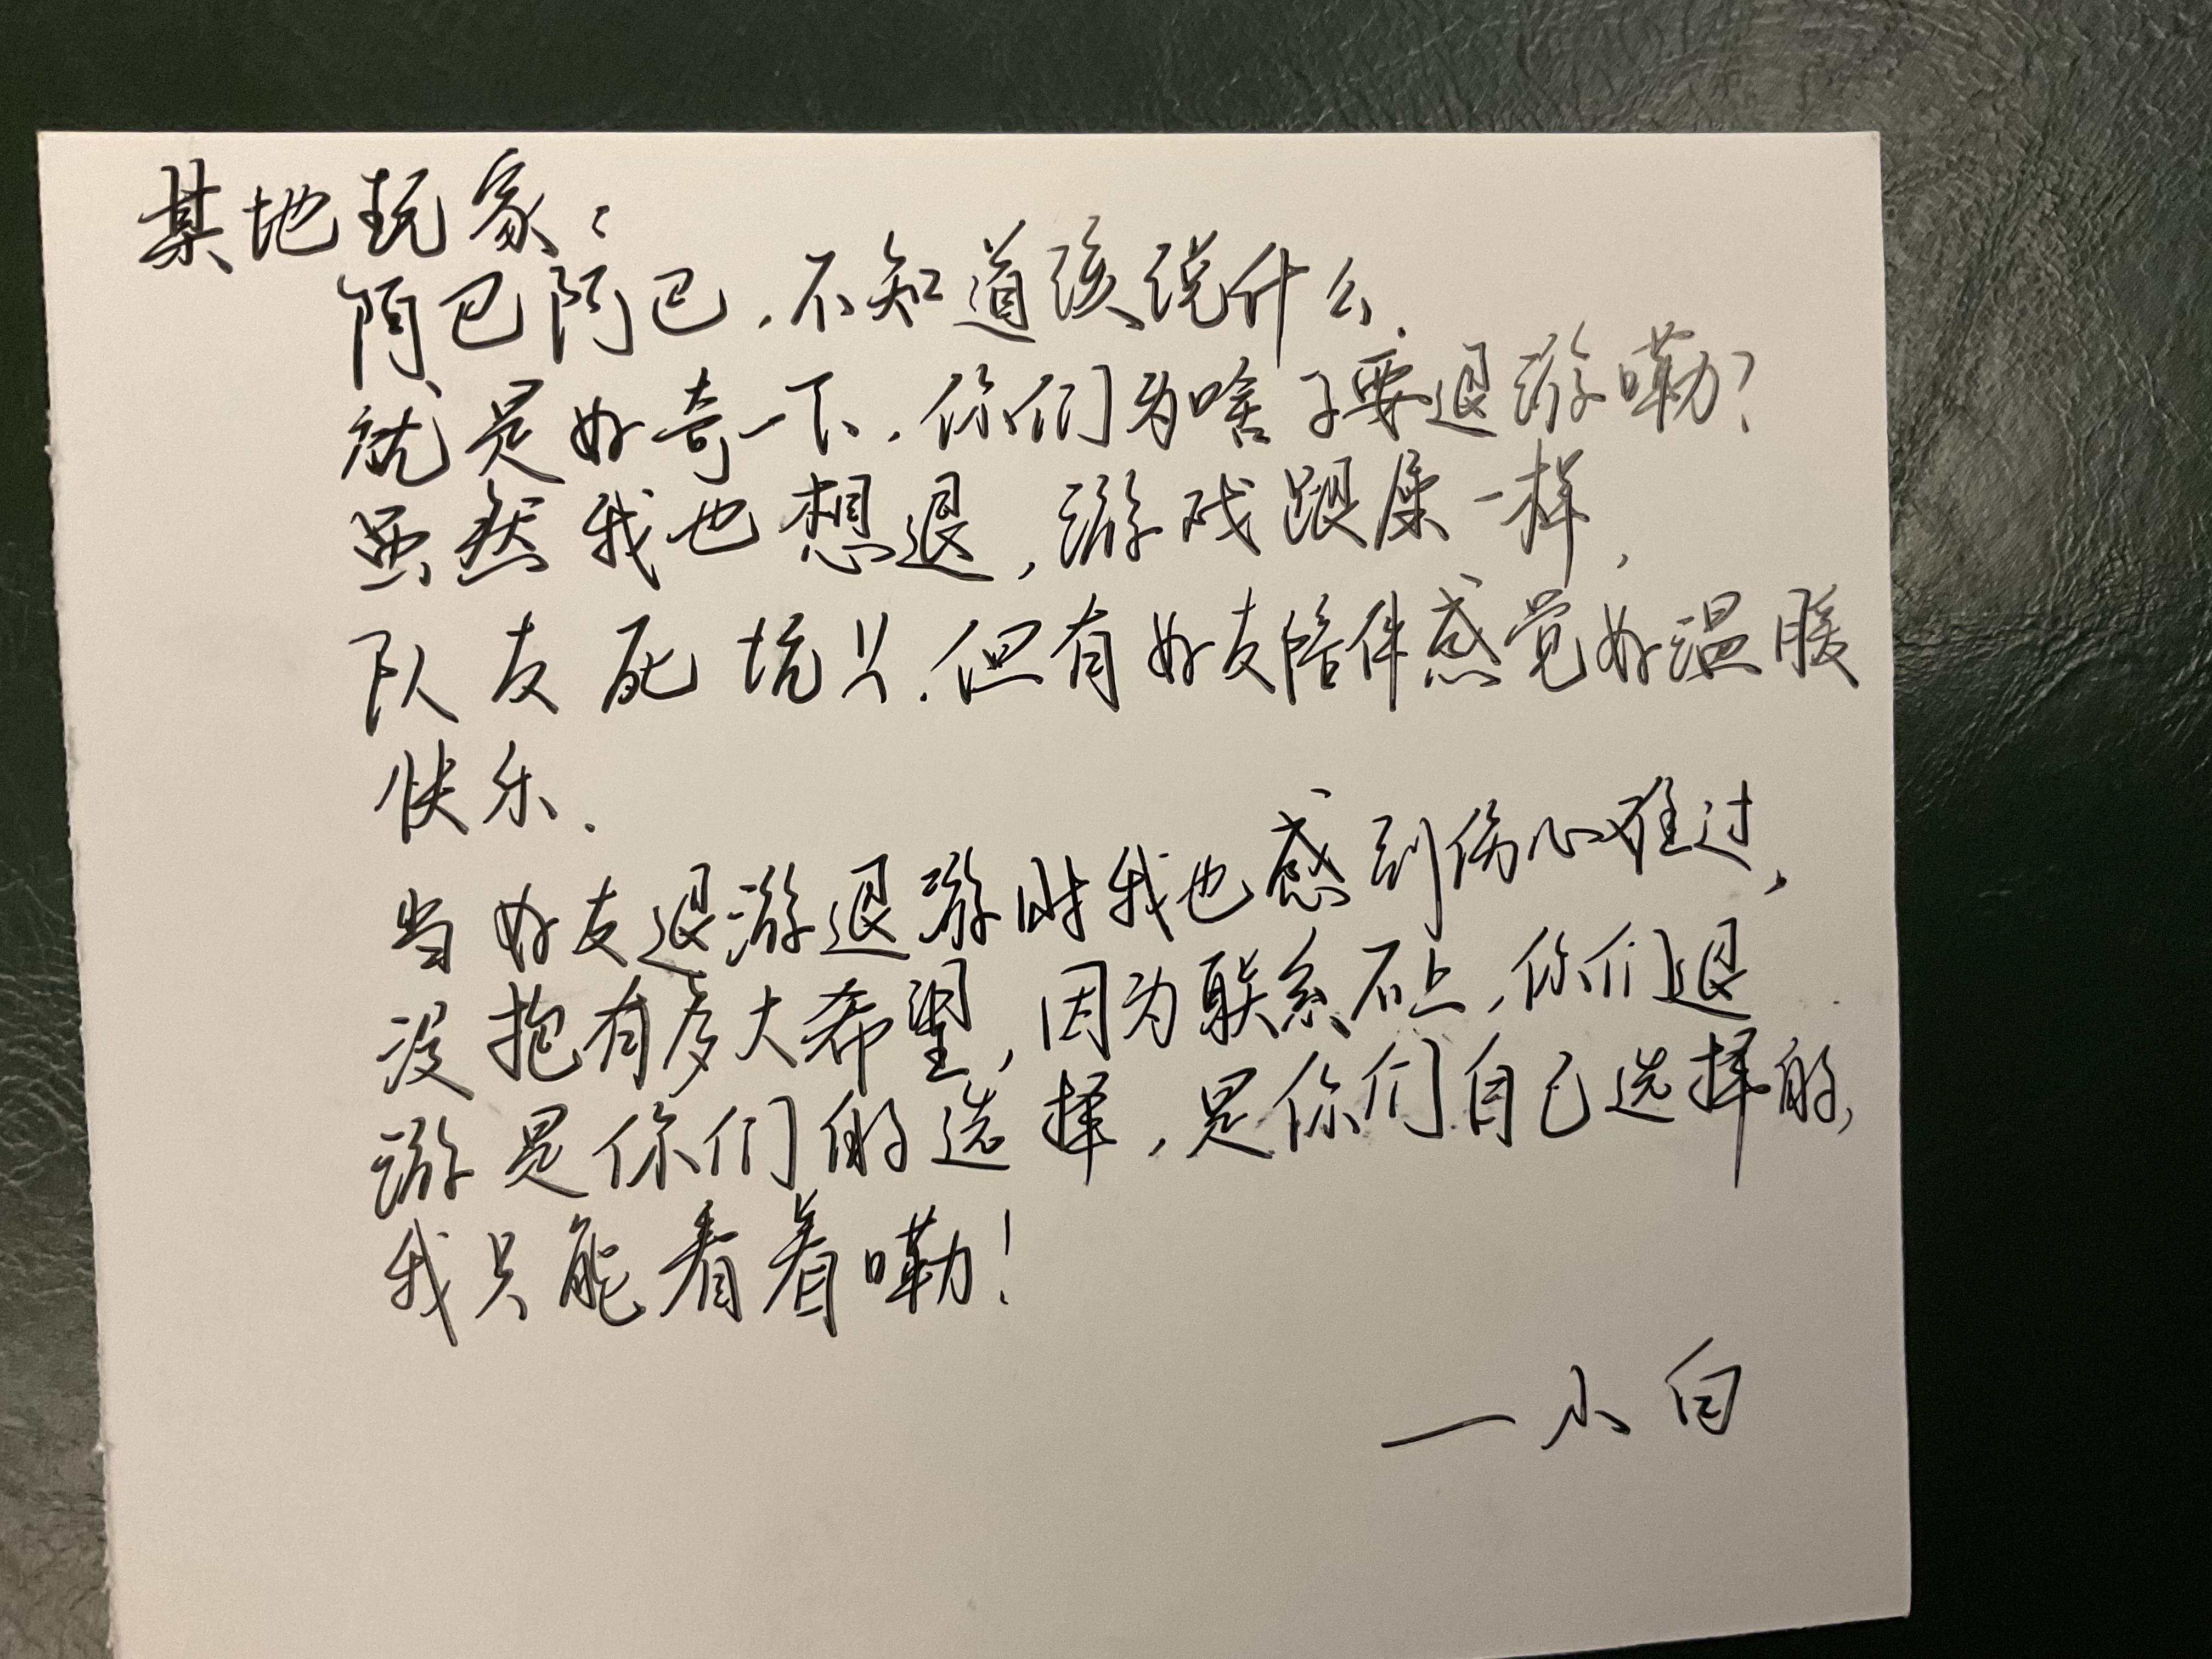 某地玩家：
阿巴阿巴，不知道该说什么.
就是好奇一下，你们为啥子要退游嘞？
虽然我也想退，游戏跟屎一样，
队友死坑火.但有好友陪伴感觉好温暖
快乐.
当好友退游退游时我也感到伤心难过，
没抱有多大希望，因为联系不上，你们退
游是你们的选择，是你们自己选择的，
我只能看着嘞！
—小白